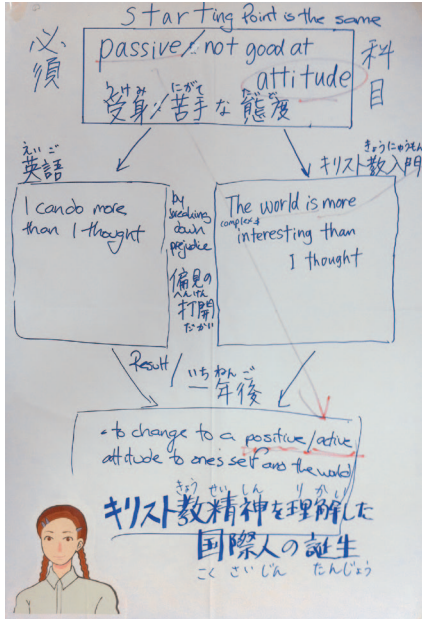 starting Point is the same
必須
科目
passive/not good at
attitude
うけみ にがて たいど
受身/苦手な態度
えいご
英語
きょうにゅうもん
キリスト教入門
I can do more
than I thought
by
breaking
down
prejudice
偏見の
へんけん
打開
だかい
The world is more
complex &
interesting than
I thought
Result/
いちねんご
一年後
・to change to a positive/active
attitude to one's self and the world
きょうせいしん りかい
キリスト教精神を理解した
国際人の誕生
こくさいじん たんじょう